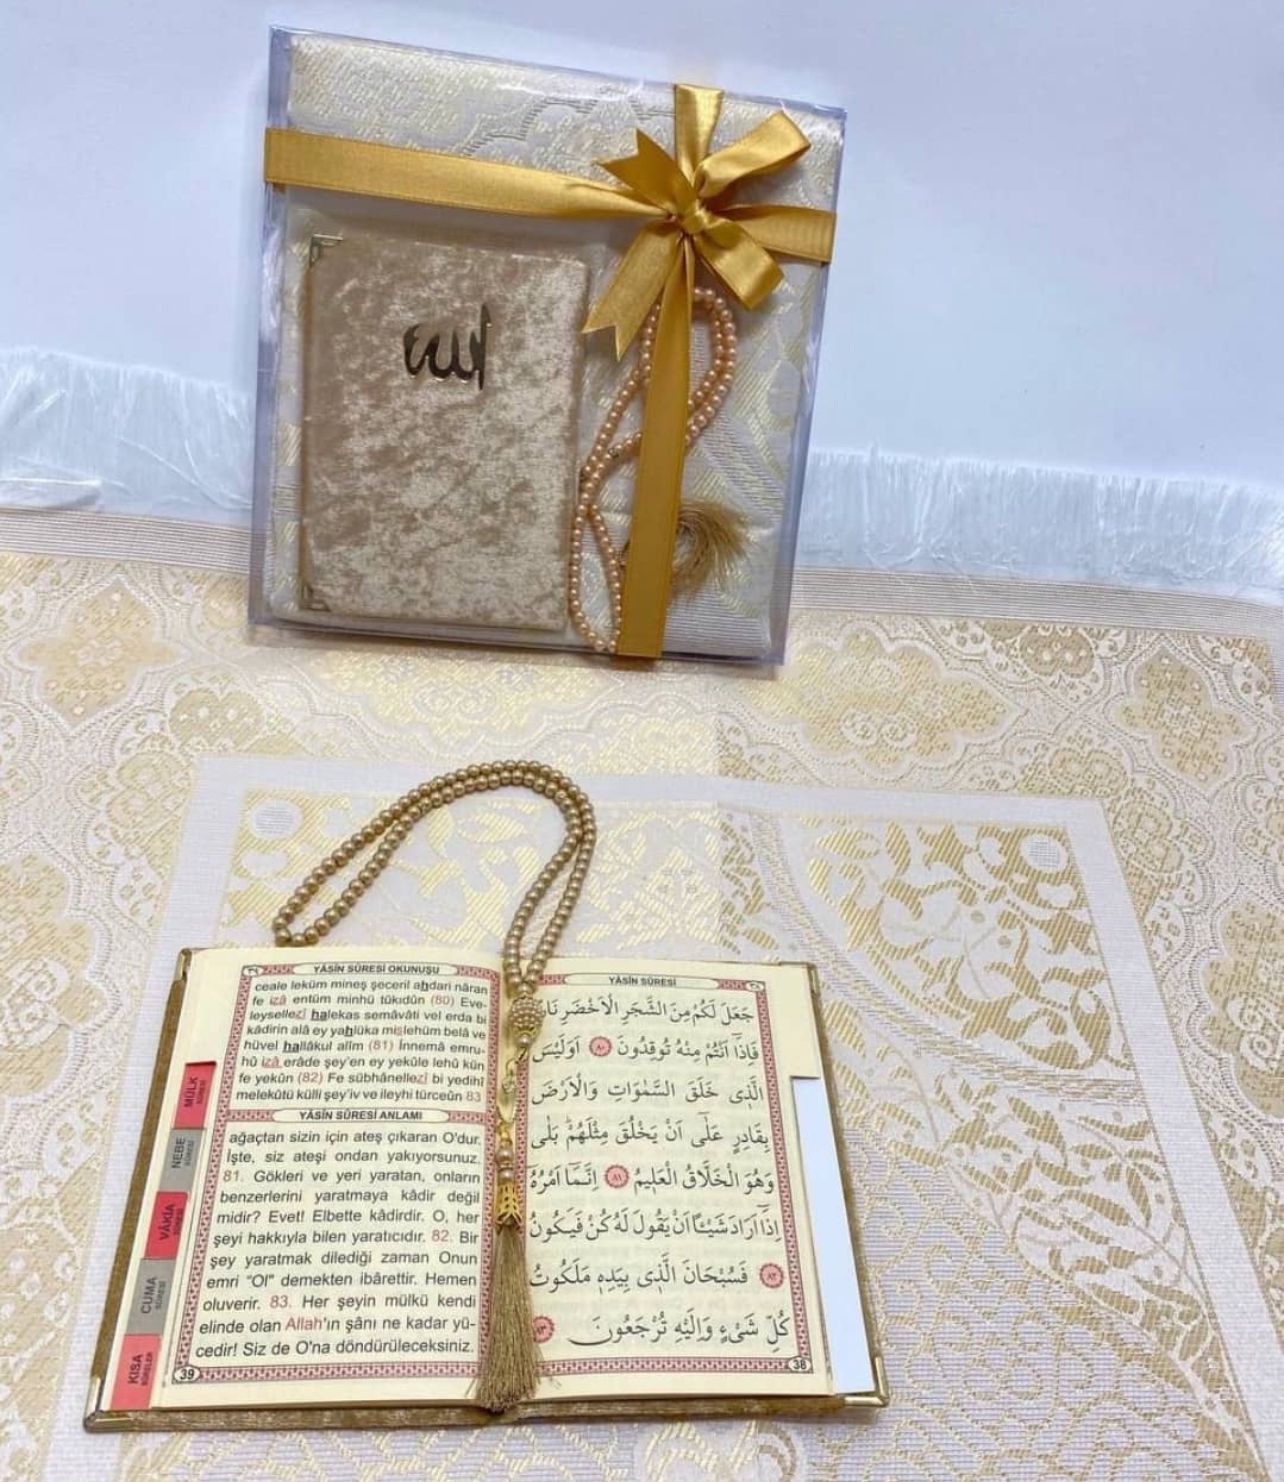 الله
٣٩
YÂSÎN SÛRESİ OKUNUŞU
ceale leküm mineş şeceril ahdari nâran
fe izâ entüm minhü tûkıdûn (80) Eve-
leysellezî halekas semâvâti vel erda bi
kâdirin alâ ey yahlüka mislehüm belâ ve
hüvel hallâkul alîm (81) İnnemâ emru-
hû izâ erâde şey'en ey yekûle lehû kün
fe yekûn (82) Fe sübhânellezî bi yedihî
melekûtü külli şey'iv ve ileyhi türceûn 83
YÂSÎN SÛRESİ ANLAMI
ağaçtan sizin için ateş çıkaran O'dur.
İşte, siz ateşi ondan yakıyorsunuz.
81. Gökleri ve yeri yaratan, onların
benzerlerini yaratmaya kâdir değil
midir? Evet! Elbette kâdirdir. O, her
şeyi hakkıyla bilen yaratıcıdır. 82. Bir
şey yaratmak dilediği zaman Onun
emri "Ol" demekten ibârettir. Hemen
oluverir. 83. Her şeyin mülkü kendi
elinde olan Allah'ın şânı ne kadar yü-
cedir! Siz de O'na döndürüleceksiniz.
39
MÜLK
SÛRESİ
NEBE
SÛRESİ
VÂKIA
SÛRESİ
CUMA
SÛRESİ
KISA
SÛRELER
YÂSÎN SÛRESİ
٣٨
جَعَلَ لَكُمْ مِنَ الشَّجَرِ الْاَخْضَرِ نَارًا
فَاِذَٓا اَنْتُمْ مِنْهُ تُوقِدُونَ ٨٠ اَوَلَيْسَ
الَّذٖى خَلَقَ السَّمٰوَاتِ وَالْاَرْضَ
بِقَادِرٍ عَلٰٓى اَنْ يَخْلُقَ مِثْلَهُمْ بَلٰى
وَهُوَ الْخَلَّاقُ الْعَلٖيمُ ٨١ اِنَّمَٓا اَمْرُهُٓ
اِذَٓا اَرَادَ شَيْـًٔا اَنْ يَقُولَ لَهُ كُنْ فَيَكُونُ
٨٢ فَسُبْحَانَ الَّذٖى بِيَدِهٖ مَلَكُوتُ
كُلِّ شَىْءٍ وَاِلَيْهِ تُرْجَعُونَ ٨٣
38